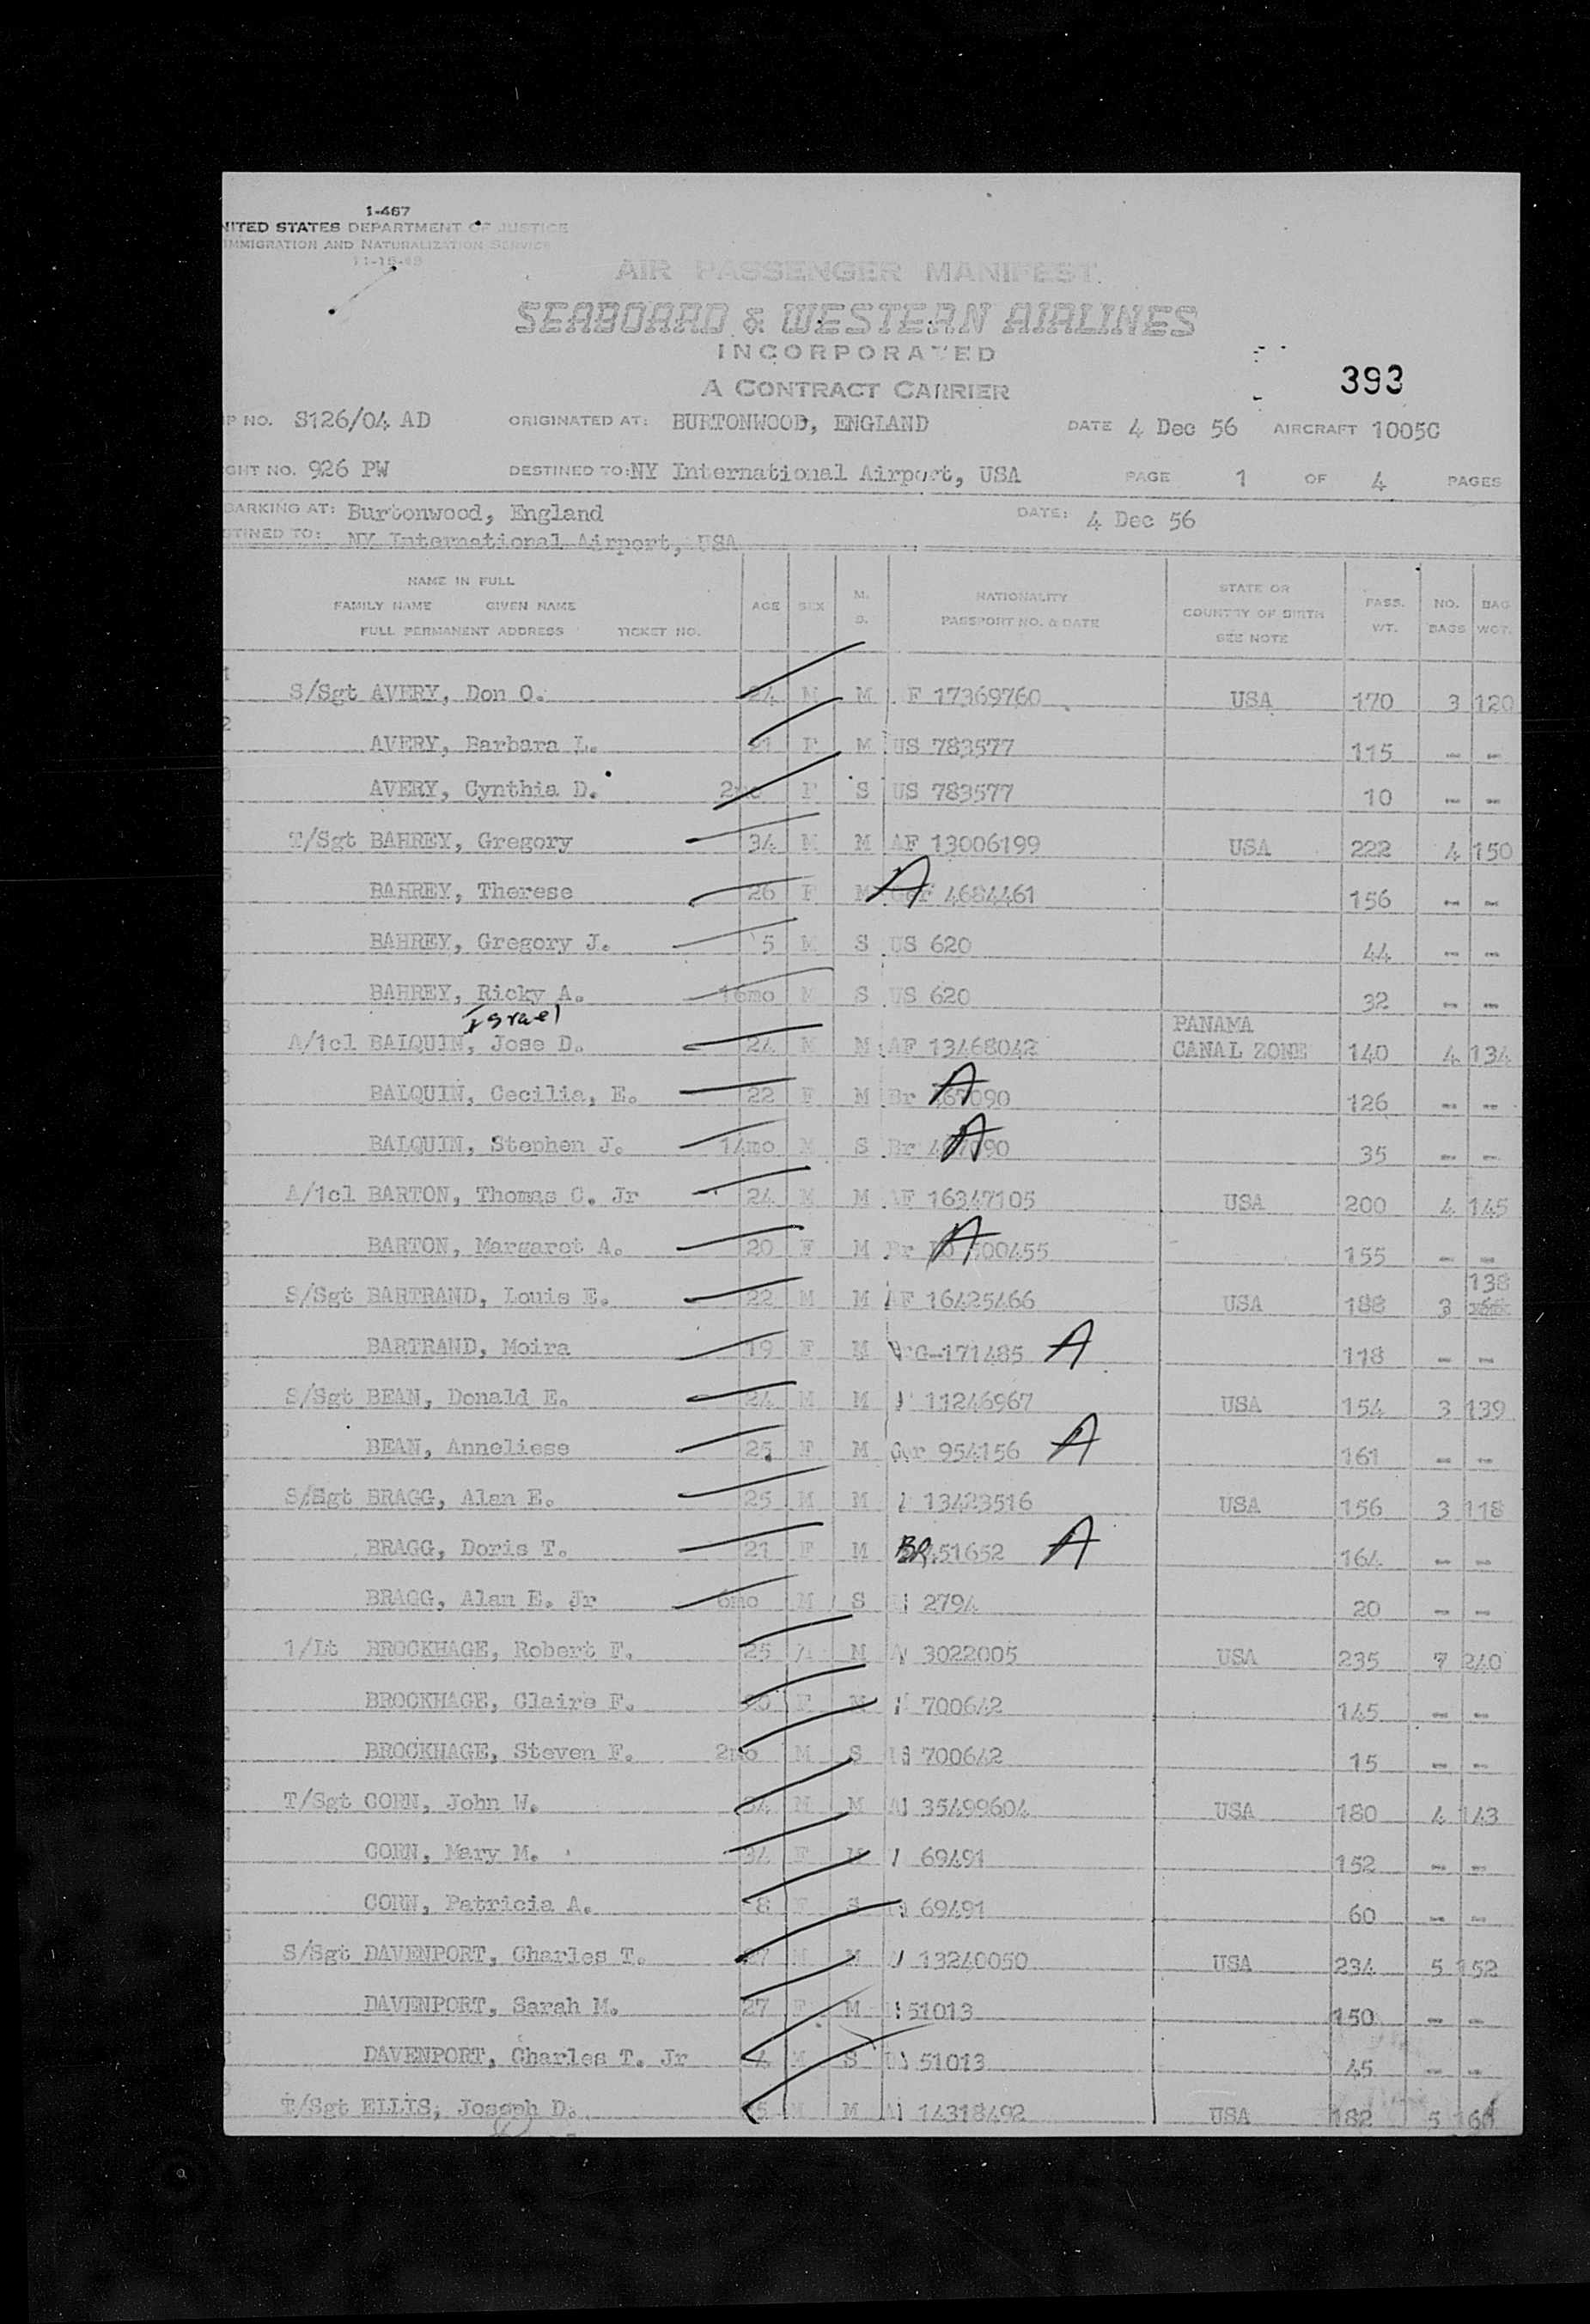 1-467
NITED STATES DEPARTMENT OF JUSTICE
IMMIGRATION AND NATURALIZATION SERVICE
11-15-48
AIR PASSENGER MANIFEST
SEABOARD & WESTERN AIRLINES
INCORPORATED
A CONTRACT CARRIER
393
P NO. S126/04 AD ORIGINATED AT: BURTONWOOD, ENGLAND DATE 4 Dec 56 AIRCRAFT 1005C
GHT NO. 926 PW DESTINED TO: NY International Airport, USA PAGE 1 OF 4 PAGES
BARKING AT: Burtonwood, England DATE: 4 Dec 56
TINED TO: NY International Airport, USA
NAME IN FULL
FAMILY NAME GIVEN NAME
FULL PERMANENT ADDRESS TICKET NO.
AGE SEX M. S. NATIONALITY PASSPORT NO. & DATE STATE OR COUNTRY OF BIRTH SEE NOTE PASS. WT. NO. BAGS BAG WGT.
S/Sgt AVERY, Don O. 24 M M F 17369760 USA 170 3 120
AVERY, Barbara L. 21 F M US 783577 115 -- --
AVERY, Cynthia D. F S US 783577 10 -- --
T/Sgt BAHREY, Gregory 34 M M AF 13006199 USA 222 4 150
BAHREY, Therese 26 F M A 4684461 156 -- --
BAHREY, Gregory J. 5 M S US 620 44 -- --
BAHREY, Ricky A. 16mo M S US 620 32 -- --
Israel
A/1cl BALQUIN, Jose D. 24 M M AF 13468042 PANAMA CANAL ZONE 140 4 134
BALQUIN, Cecilia, E. 22 F M Br A 126 -- --
BALQUIN, Stephen J. 14mo M S Br A 35 -- --
A/1cl BARTON, Thomas C. Jr 24 M M AF 16347105 USA 200 4 145
BARTON, Margaret A. 20 F M Br A 155 -- --
138
S/Sgt BARTRAND, Louis E. 22 M M AF 16425466 USA 188 3
BARTRAND, Moira 19 F M G-171485 A 118 -- --
S/Sgt BEAN, Donald E. 24 M M 11246967 USA 154 3 139
BEAN, Anneliese 25 F M Ger 954156 A 161 -- --
S/Sgt BRAGG, Alan E. 25 M M 13423516 USA 156 3 118
BRAGG, Doris T. 21 F M BR. 51652 A 164 -- --
BRAGG, Alan E. Jr 6mo M S 2794 20 -- --
1/Lt BROCKHAGE, Robert F. 25 M 3022005 USA 235 7 240
BROCKHAGE, Claire F. F M 700642 145 -- --
BROCKHAGE, Steven F. 2mo M S 700642 15 -- --
T/Sgt CORN, John W. 34 M M 35499604 USA 180 4 143
CORN, Mary M. 34 F M 69491 152 -- --
CORN, Patricia A. 8 F S 69491 60 -- --
S/Sgt DAVENPORT, Charles T. 27 M M 13240050 USA 234 5 152
DAVENPORT, Sarah M. 27 F M 51013 150 -- --
DAVENPORT, Charles T. Jr 4 M S 51013 45 -- --
T/Sgt ELLIS, Joseph D. M M 14318492 USA 182 5